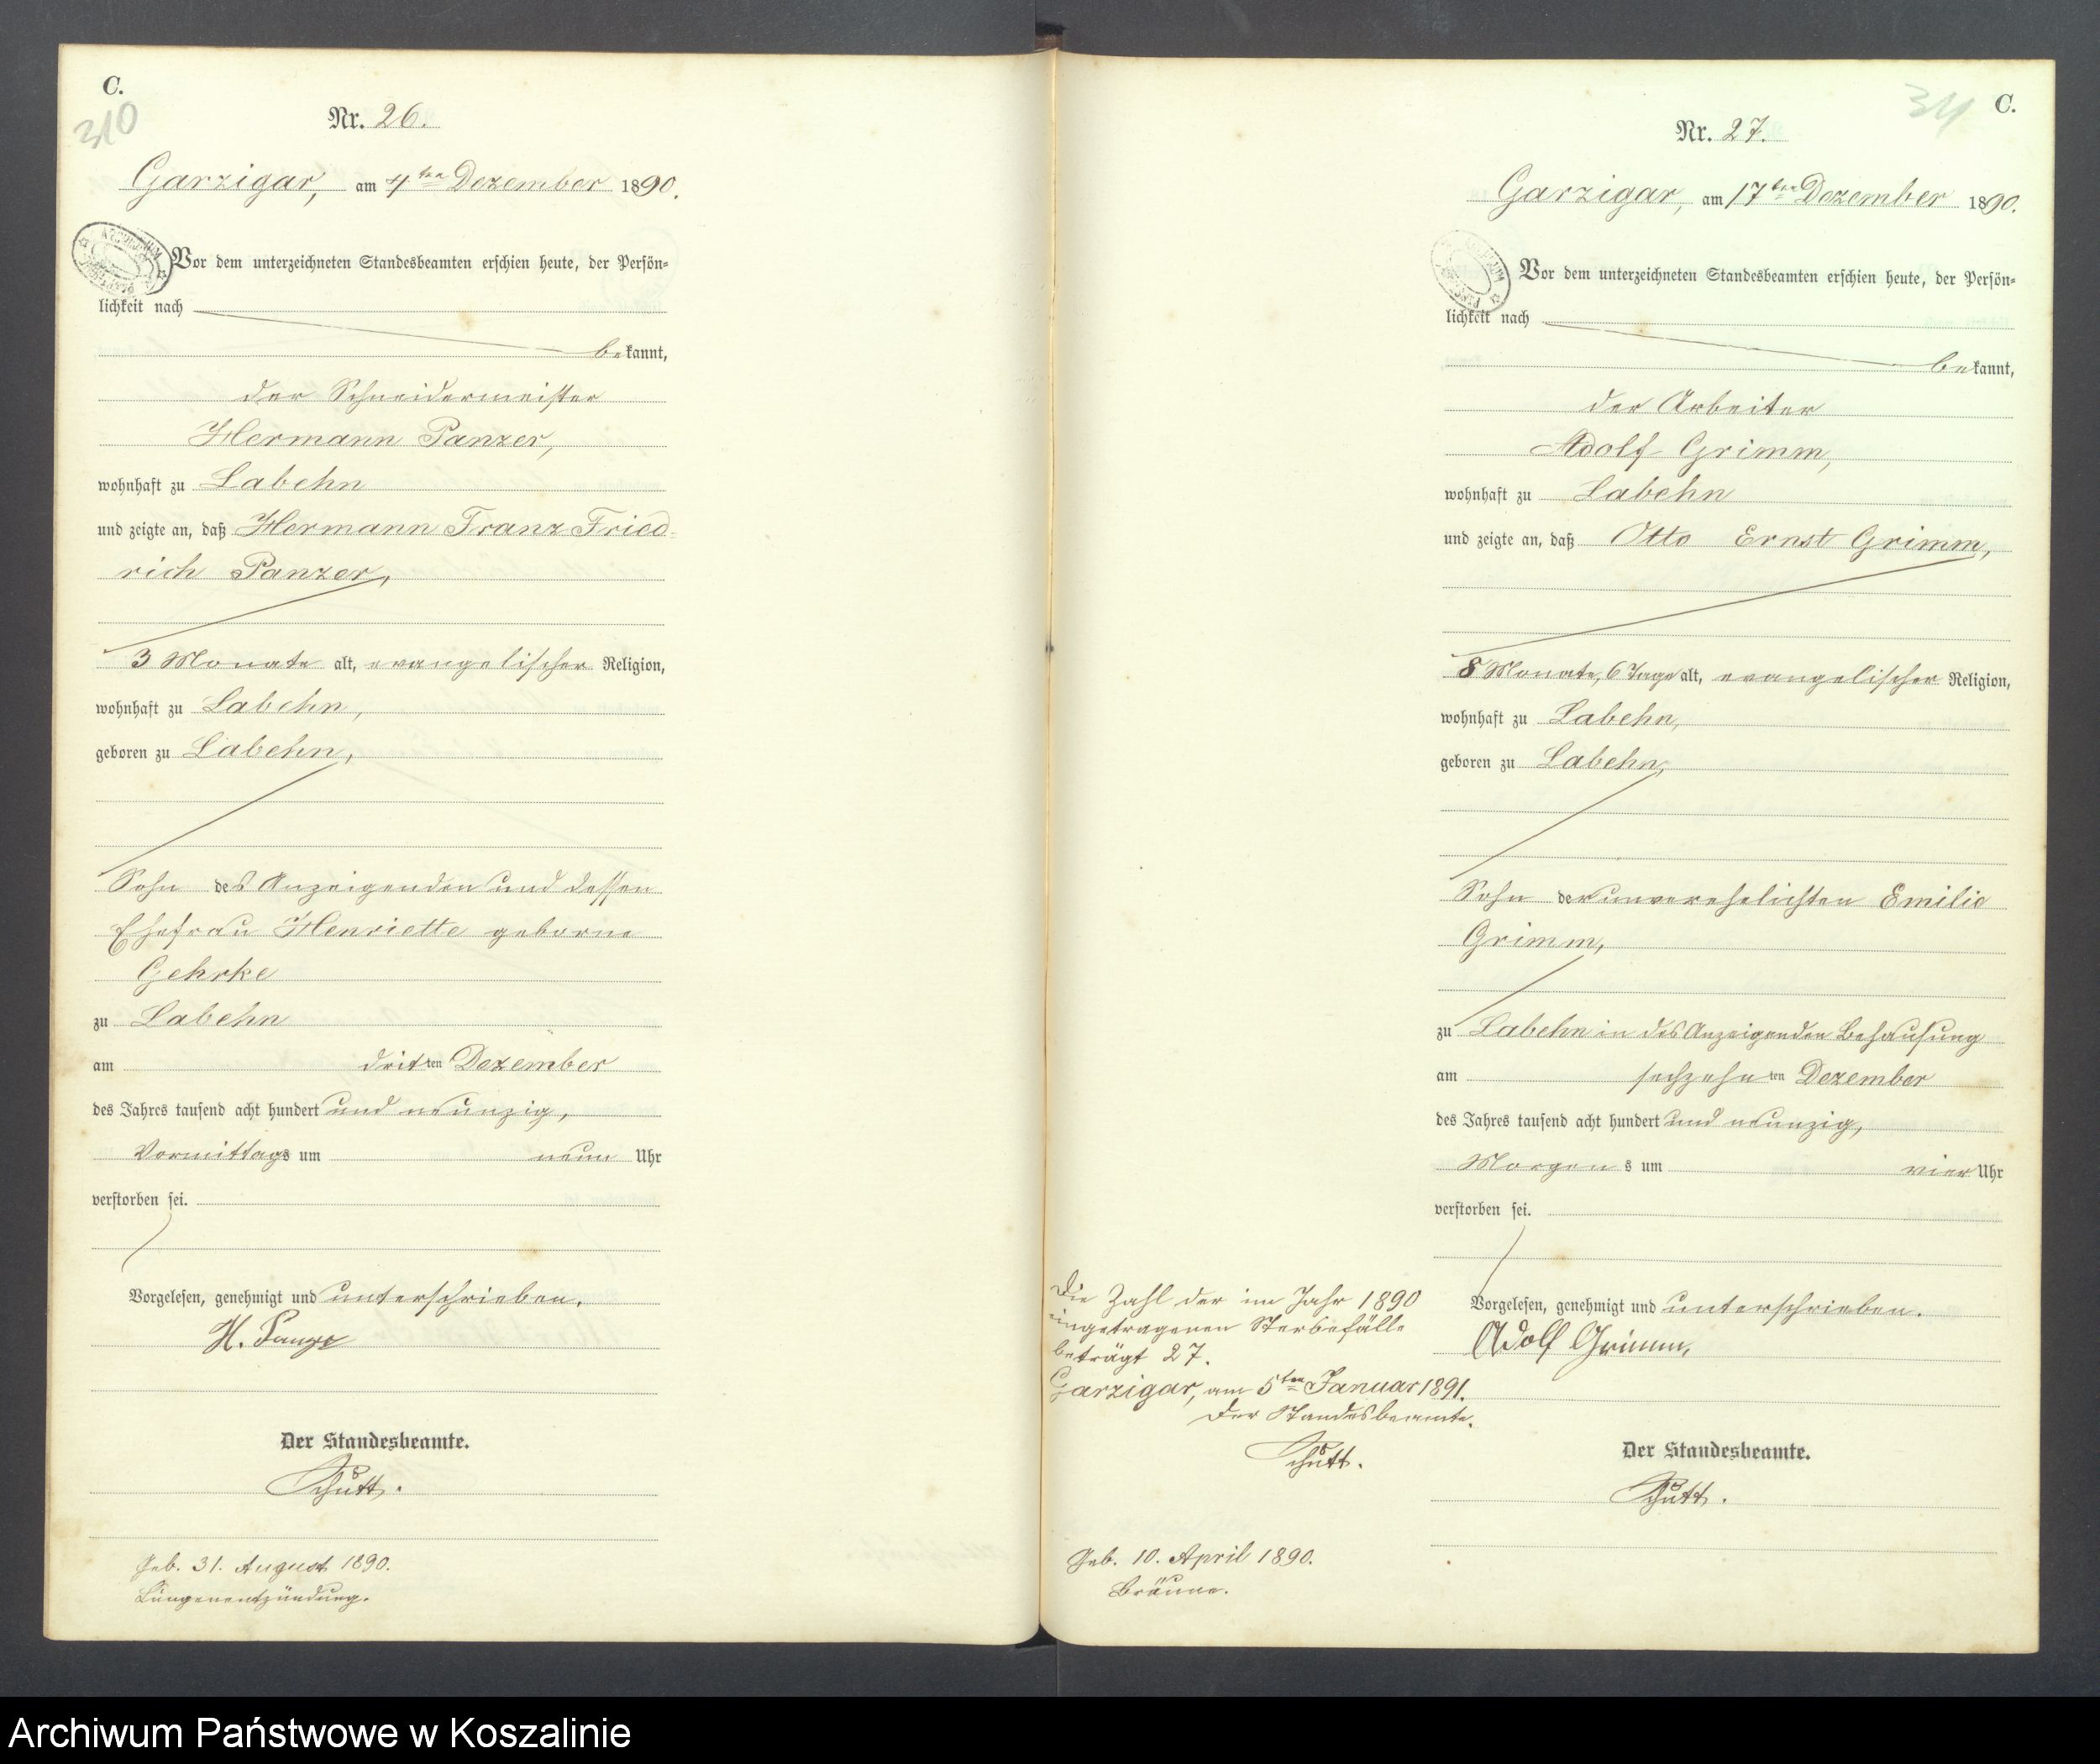 C.
310
Nr. 26.
Garzigar, am 4ten Dezember 1890.
Vor dem unterzeichneten Standesbeamten erschien heute, der Persön-
lichkeit nach
bekannt,
der Schneidermeister
Hermann Panzer,
wohnhaft zu Labehn
und zeigte an, daß Hermann Franz Fried-
rich Panzer,
3 Monate alt, evangelischer Religion,
wohnhaft zu Labehn,
geboren zu Labehn,
Sohn des Anzeigenden und dessen
Ehefrau Henriette geborne
Gehrke
zu Labehn
am dritten Dezember
des Jahres tausend acht hundert und neunzig,
Vormittags um neun Uhr
verstorben sei.
Vorgelesen, genehmigt und unterschrieben.
H. Panzer
Der Standesbeamte.
Schütt.
Geb. 31. August 1890.
Lungenentzündung.
C.
311
Nr. 27.
Garzigar, am 17ten Dezember 1890.
Vor dem unterzeichneten Standesbeamten erschien heute, der Persön-
lichkeit nach
bekannt,
der Arbeiter
Adolf Grimm,
wohnhaft zu Labehn
und zeigte an, daß Otto Ernst Grimm,
8 Monate, 6 Tage alt, evangelischer Religion,
wohnhaft zu Labehn,
geboren zu Labehn,
Sohn der unverehelichten Emilie
Grimm,
zu Labehn in des Anzeigenden Behausung
am sechzehnten Dezember
des Jahres tausend acht hundert und neunzig,
Morgens um vier Uhr
verstorben sei.
Vorgelesen, genehmigt und unterschrieben.
Adolf Grimm,
Der Standesbeamte.
Schütt.
Die Zahl der im Jahr 1890
eingetragenen Sterbefälle
beträgt 27.
Garzigar, am 5ten Januar 1891.
Der Standesbeamte.
Schütt.
Geb. 10. April 1890.
Bräune.
Archiwum Państwowe w Koszalinie